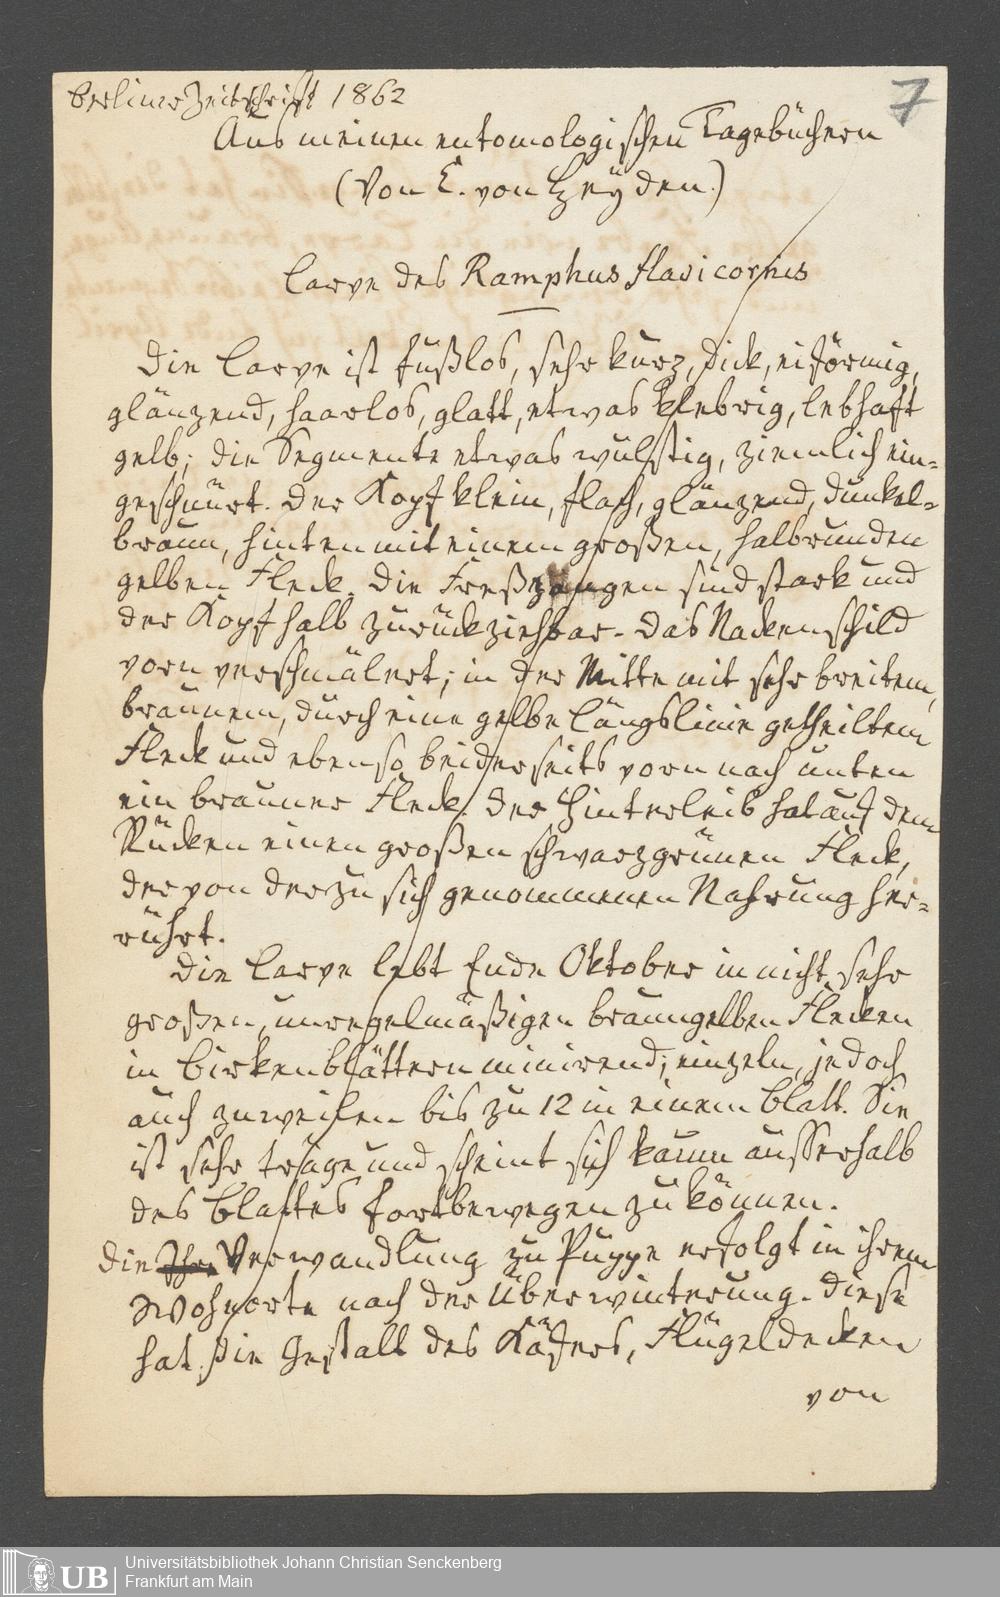 Berliner Zeitschrift 1862
7
Aus meinen entomologischen Tagebüchern
(Von C. von Heyden.)
Larve des Ramphus flavicornis
Die Larve ist fußlos, sehr kurz, dick, eiförmig,
glänzend, haarlos, glatt, etwas klebrig, lebhaft
gelb; die Segmente etwas wulstig, ziemlich ein-
geschnürt. Der Kopf klein, flach, glänzend, dunkel-
braun, hinten mit einem großen, halbrunden
gelben Fleck. Die Freßzangen sind stark und
der Kopf halb zurückziehbar. Das Nackenschild
vorn verschmälert; in der Mitte mit sehr breitem,
braunem, durch eine gelbe Längslinie getheiltem
Fleck und ebenso beiderseits vorn nach unten
ein brauner Fleck. Der Hinterleib hat auf dem
Rücken einen großen schwarzgrünen Fleck,
der von der zu sich genommenen Nahrung her-
rührt.
Die Larve lebt Ende Oktober in nicht sehr
großen, unregelmäßigen braungelben Flecken
in Birkenblättern minirend; einzeln, jedoch
auch zuweilen bis zu 12 in einem Blatt. Sie
ist sehr träge und scheint sich kaum ausserhalb
des Blattes fortbewegen zu können.
Die Ihre Verwandlung zu Puppe erfolgt in ihrem
Wohnorte nach der Überwinterung. Diese
hat die Gestalt des Käfers, Flügeldecken
von
UB
Universitätsbibliothek Johann Christian Senckenberg
Frankfurt am Main